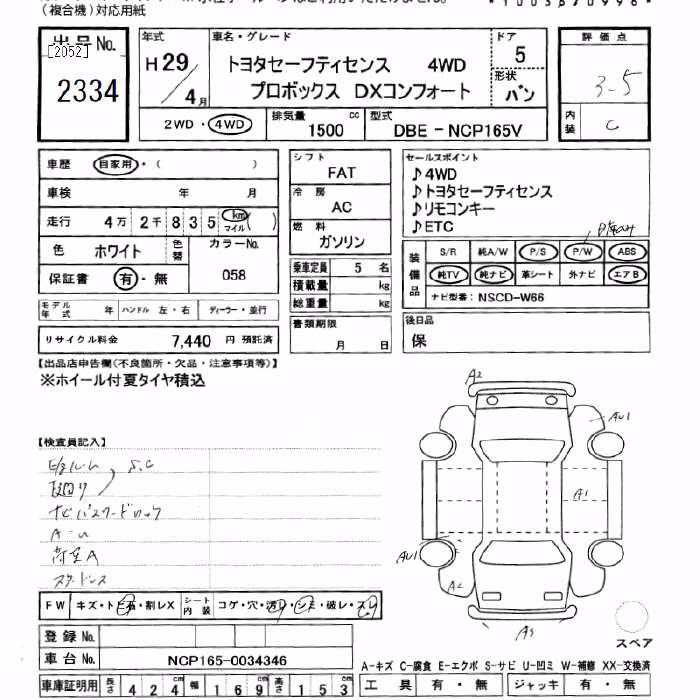 (複合機)対応用紙
出品No.
[2052]
2334
年式
H29/4月
車名・グレード
トヨタセーフティセンス 4WD
プロボックス DXコンフォート
ドア
5
形状
バン
評価点
3-5
内装
C
2WD・4WD
排気量 1500 cc
型式 DBE-NCP165V
車歴 自家用・( )
車検 年 月
走行 4万2千835 km マイル ( )
色 ホワイト
色替
カラーNo.
058
保証書 有・無
モデル年式 年 ハンドル 左・右 ディーラー・並行
リサイクル料金 7,440 円 預託済
シフト
FAT
冷房
AC
燃料
ガソリン
乗車定員 5 名
積載量 kg
総重量 kg
書類期限
月 日
セールスポイント
♪4WD
♪トヨタセーフティセンス
♪リモコンキー
♪ETC
装備品
S/R 純A/W P/S P/W ABS
純TV 純ナビ 革シート 外ナビ エアB
ナビ型番: NSCD-W66
後日品
保
【出品店申告欄(不良箇所・欠品・注意事項等)】
※ホイール付夏タイヤ積込
【検査員記入】
S.C
A2
AU1
A1
AU1
A2
FW キズ・トビ石・割レX シート内装 コゲ・穴・汚レ・シミ・破レ・スレ
登録No.
車台No. NCP165-0034346
車庫証明用 長さ 424 cm 幅 169 cm 高さ 153 cm
スペア
A-キズ C-腐食 E-エクボ S-サビ U-凹ミ W-補修 XX-交換済
工具 有・無 ジャッキ 有・無